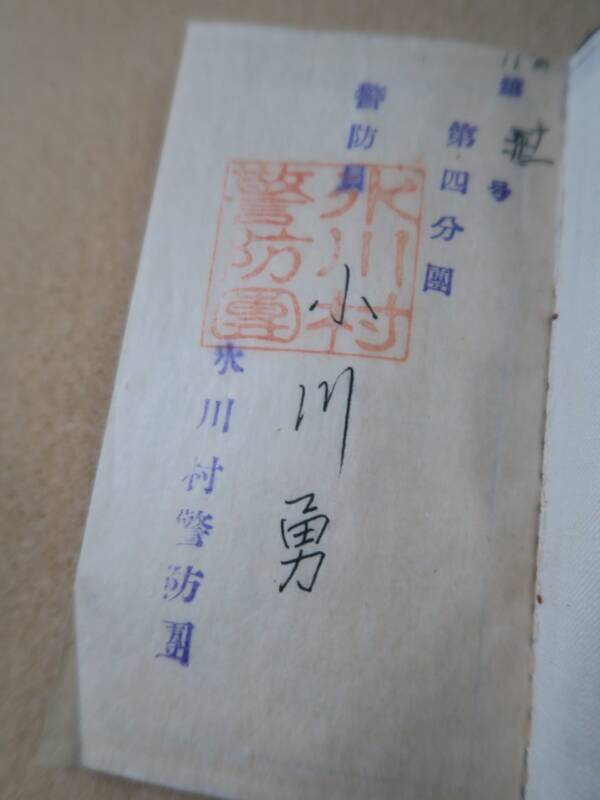 号
第四分團
警防員
小川勇
氷川村
警防團
氷川村警防團